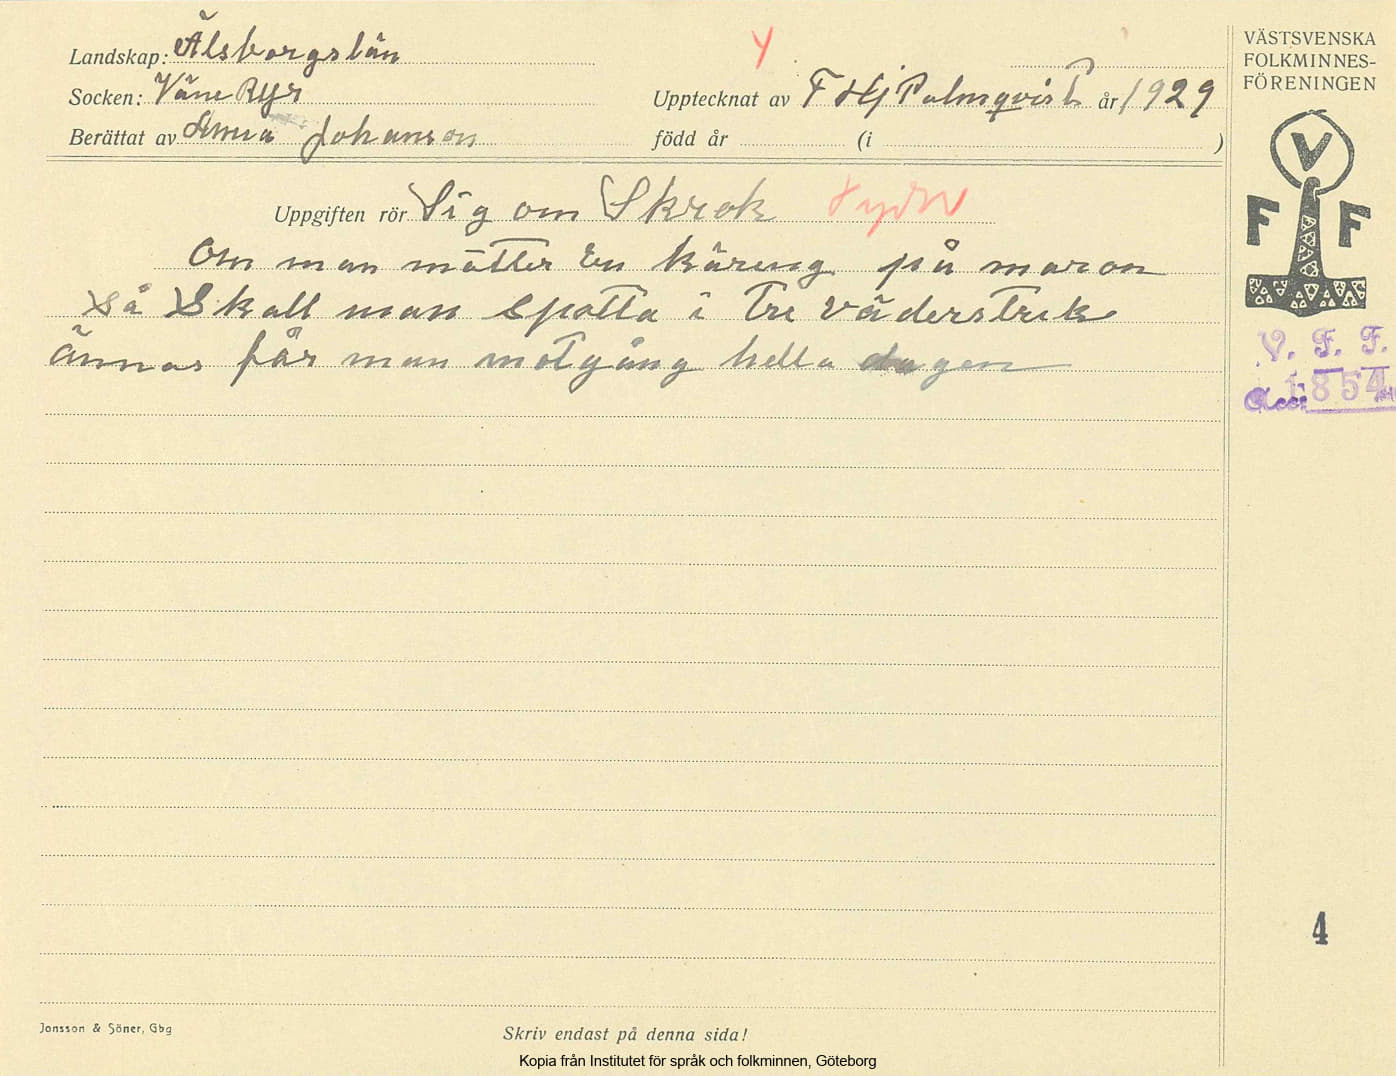 Landskap: Älsborgslän
Y
VÄSTSVENSKA
FOLKMINNES-
FÖRENINGEN
Socken: Väne Ryr
Upptecknat av F Hj Palmqvist år 1929
Berättat av Anna Johanson
född år (i )
V
F F
Uppgiften rör Sig om Skrok
Om man mötter En käring på maron
så Skall man spotta i tre väderstrek
ännas får man motgång hella dagen
V. F. F.
Acc: 1854
4
Jonsson & Söner, Gbg
Skriv endast på denna sida!
Kopia från Institutet för språk och folkminnen, Göteborg